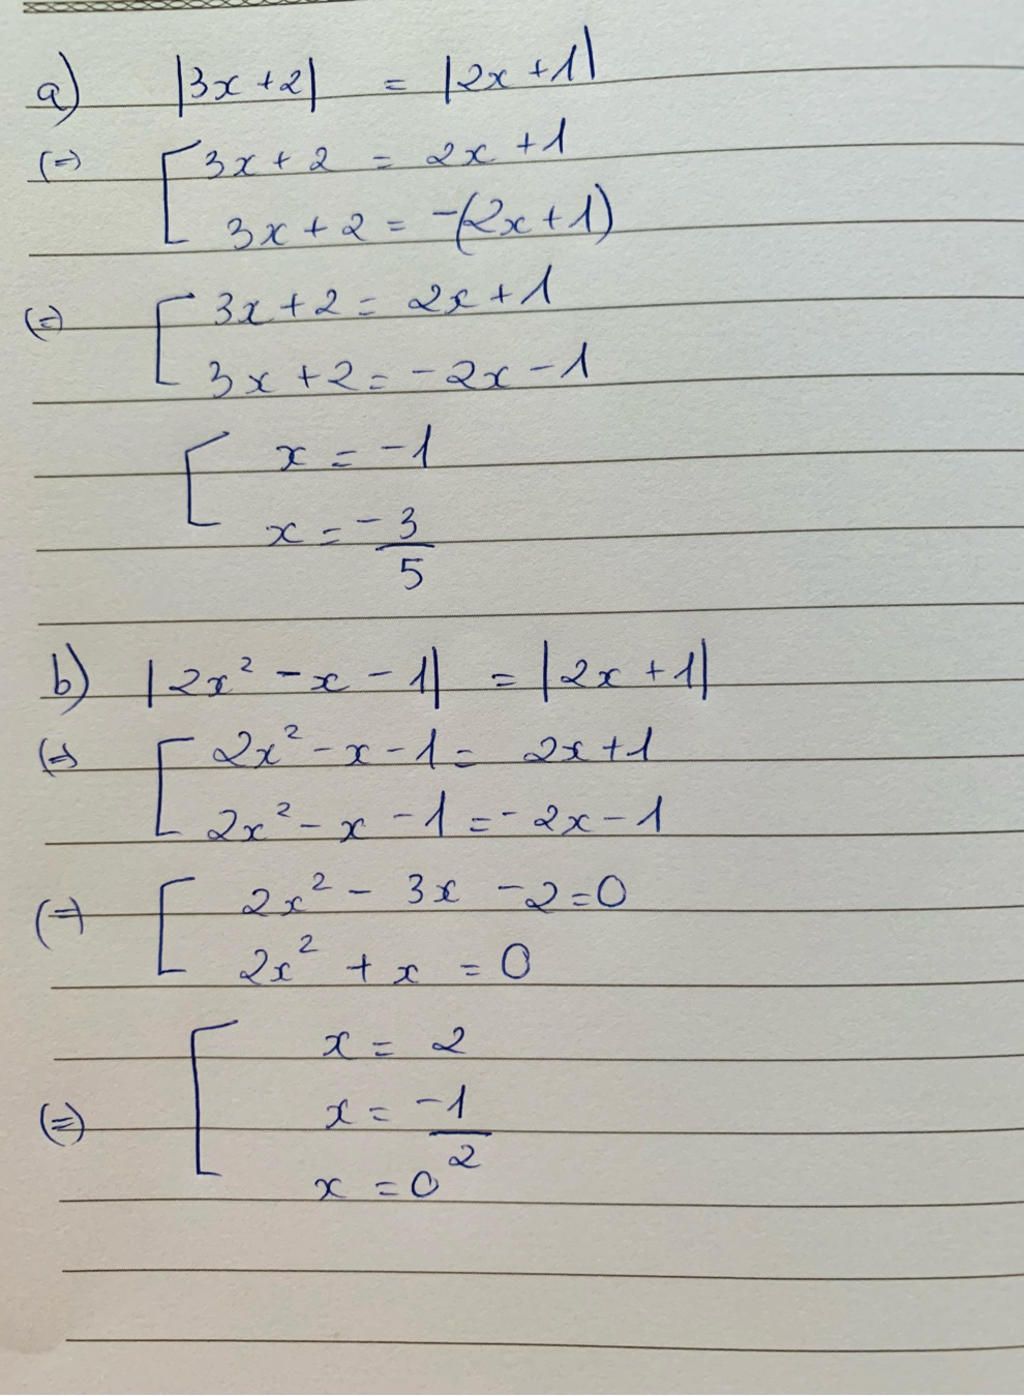 a) |3x+2| = |2x+1|
(=) [ 3x+2 = 2x+1
3x+2 = -(2x+1)
(=) [ 3x+2 = 2x+1
3x+2 = -2x-1
[ x = -1
x = -3/5
b) |2x²-x-1| = |2x+1|
(=) [ 2x²-x-1 = 2x+1
2x²-x-1 = -2x-1
(=) [ 2x²-3x-2=0
2x²+x = 0
(=) [ x = 2
x = -1/2
x = 0